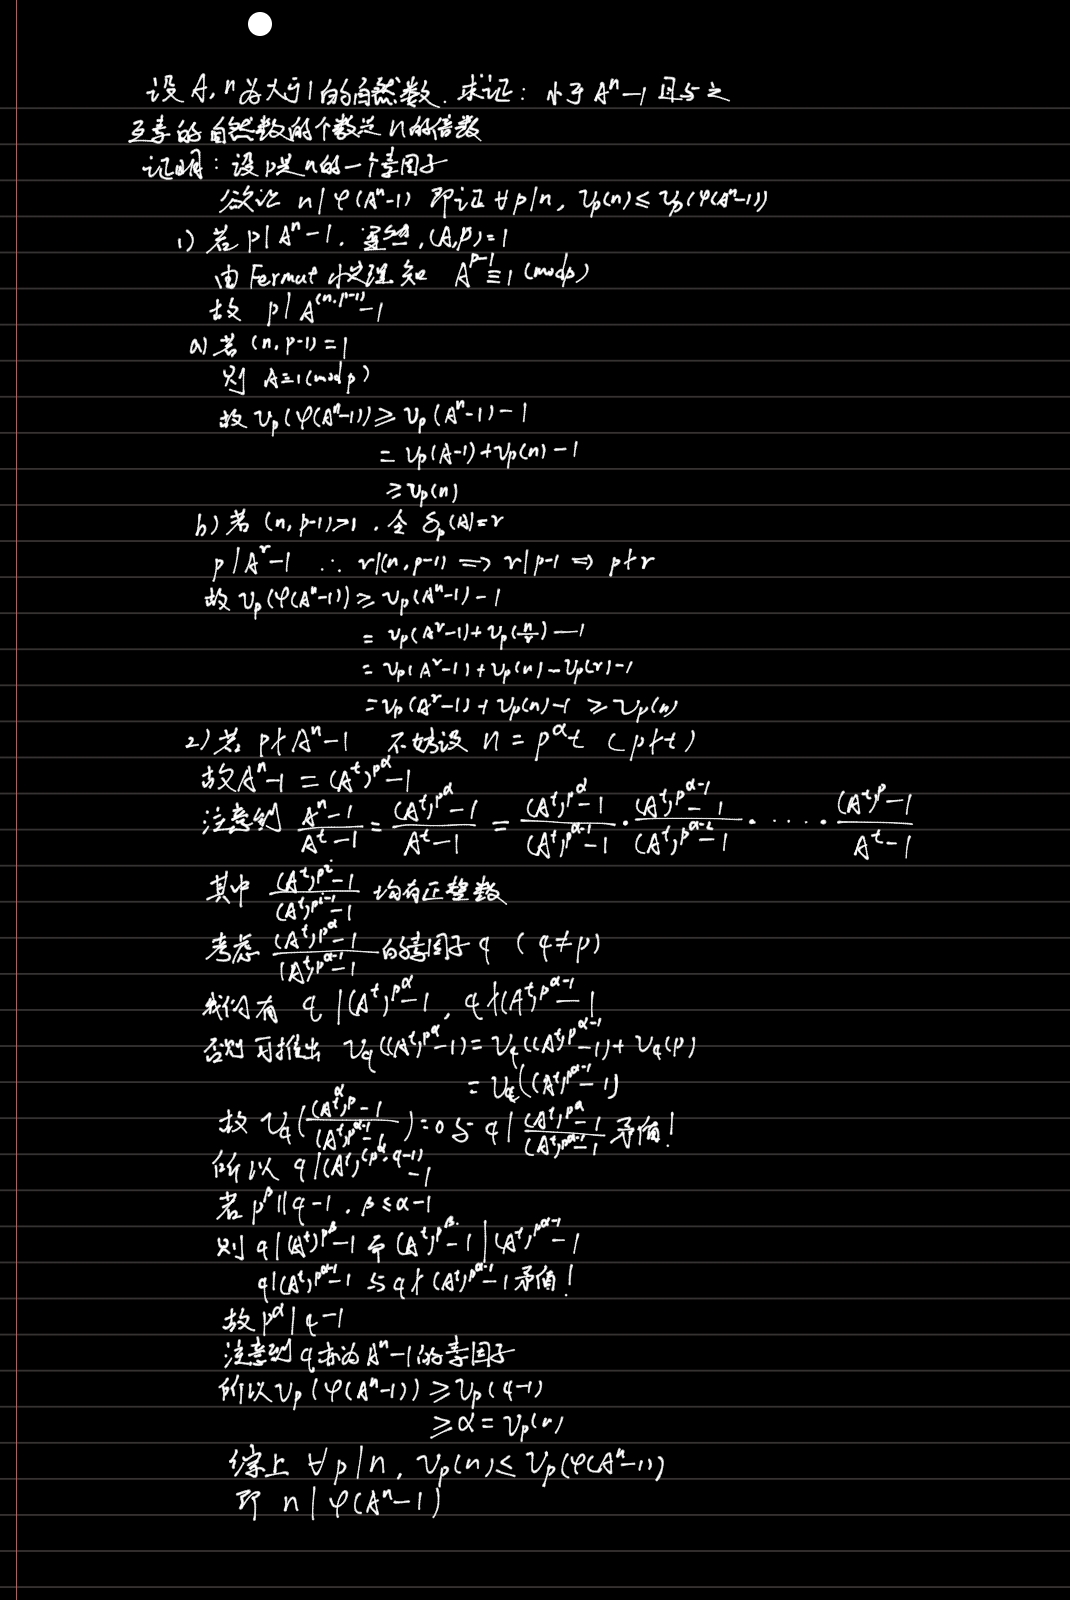 设 A, n 为大于1的自然数. 求证: 小于 Aⁿ-1 且与之
互素的自然数的个数是 n 的倍数
证明: 设 p 是 n 的一个素因子
欲证 n | φ(Aⁿ-1) 即证 ∀p|n, Vp(n) ≤ Vp(φ(Aⁿ-1))
1) 若 p | Aⁿ-1. 显然, (A,p)=1
由 Fermat 小定理知 A^{p-1} ≡ 1 (mod p)
故 p | A^{(n,p-1)}-1
a) 若 (n, p-1) = 1
则 A≡1(mod p)
故 Vp(φ(Aⁿ-1)) ≥ Vp(Aⁿ-1) - 1
= Vp(A-1)+Vp(n) - 1
≥ Vp(n)
b) 若 (n, p-1)>1. 令 δp(A)=r
p | A^r-1 ∴ r|(n,p-1) ⟹ r|p-1 ⟹ p∤r
故 Vp(φ(Aⁿ-1)) ≥ Vp(Aⁿ-1) - 1
= Vp(A^r-1) + Vp(n/r) - 1
= Vp(A^r-1) + Vp(n) - Vp(r) - 1
= Vp(A^r-1) + Vp(n) - 1 ≥ Vp(n)
2) 若 p∤Aⁿ-1 不妨设 n = p^α t (p∤t)
故 Aⁿ-1 = (A^t)^{p^α}-1
注意到 (Aⁿ-1)/(A^t-1) = ((A^t)^{p^α}-1)/(A^t-1) = ((A^t)^{p^α}-1)/((A^t)^{p^{α-1}}-1) · ((A^t)^{p^{α-1}}-1)/((A^t)^{p^{α-2}}-1) · ····· ((A^t)^p-1)/(A^t-1)
其中 ((A^t)^{p^i}-1)/((A^t)^{p^{i-1}}-1) 均有正整数
考虑 ((A^t)^{p^α}-1)/((A^t)^{p^{α-1}}-1) 的素因子 q (q≠p)
我们有 q | (A^t)^{p^α}-1, q∤(A^t)^{p^{α-1}}-1
否则可推出 Vq((A^t)^{p^α}-1) = Vq((A^t)^{p^{α-1}}-1) + Vq(p)
= Vq((A^t)^{p^{α-1}}-1)
故 Vq(((A^t)^{p^α}-1)/((A^t)^{p^{α-1}}-1))=0 与 q | ((A^t)^{p^α}-1)/((A^t)^{p^{α-1}}-1) 矛盾!
所以 q | (A^t)^{(p^α, q-1)}-1
若 p^β∥q-1. β≤α-1
则 q | (A^t)^{p^β}-1 而 (A^t)^{p^β}-1 | (A^t)^{p^{α-1}}-1
q|(A^t)^{p^{α-1}}-1 与 q∤(A^t)^{p^{α-1}}-1 矛盾!
故 p^α | q-1
注意到 q 亦为 Aⁿ-1 的素因子
所以 Vp(φ(Aⁿ-1)) ≥ Vp(q-1)
≥ α = Vp(n)
综上 ∀p|n, Vp(n) ≤ Vp(φ(Aⁿ-1))
即 n | φ(Aⁿ-1)